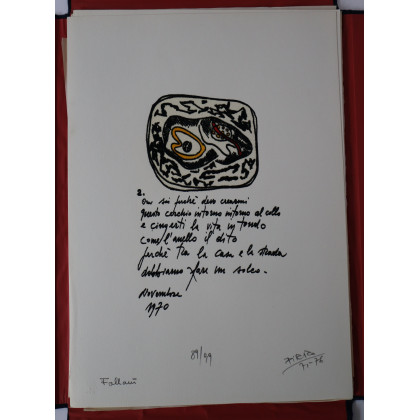 2.
Ora sai perché devo crearmi
questo cerchio intorno intorno al collo
e cingerti la vita in tondo
come l'anello il dito
perché tra la casa e la strada
dobbiamo fare un solco.
Novembre
1970
89/99
Fallani